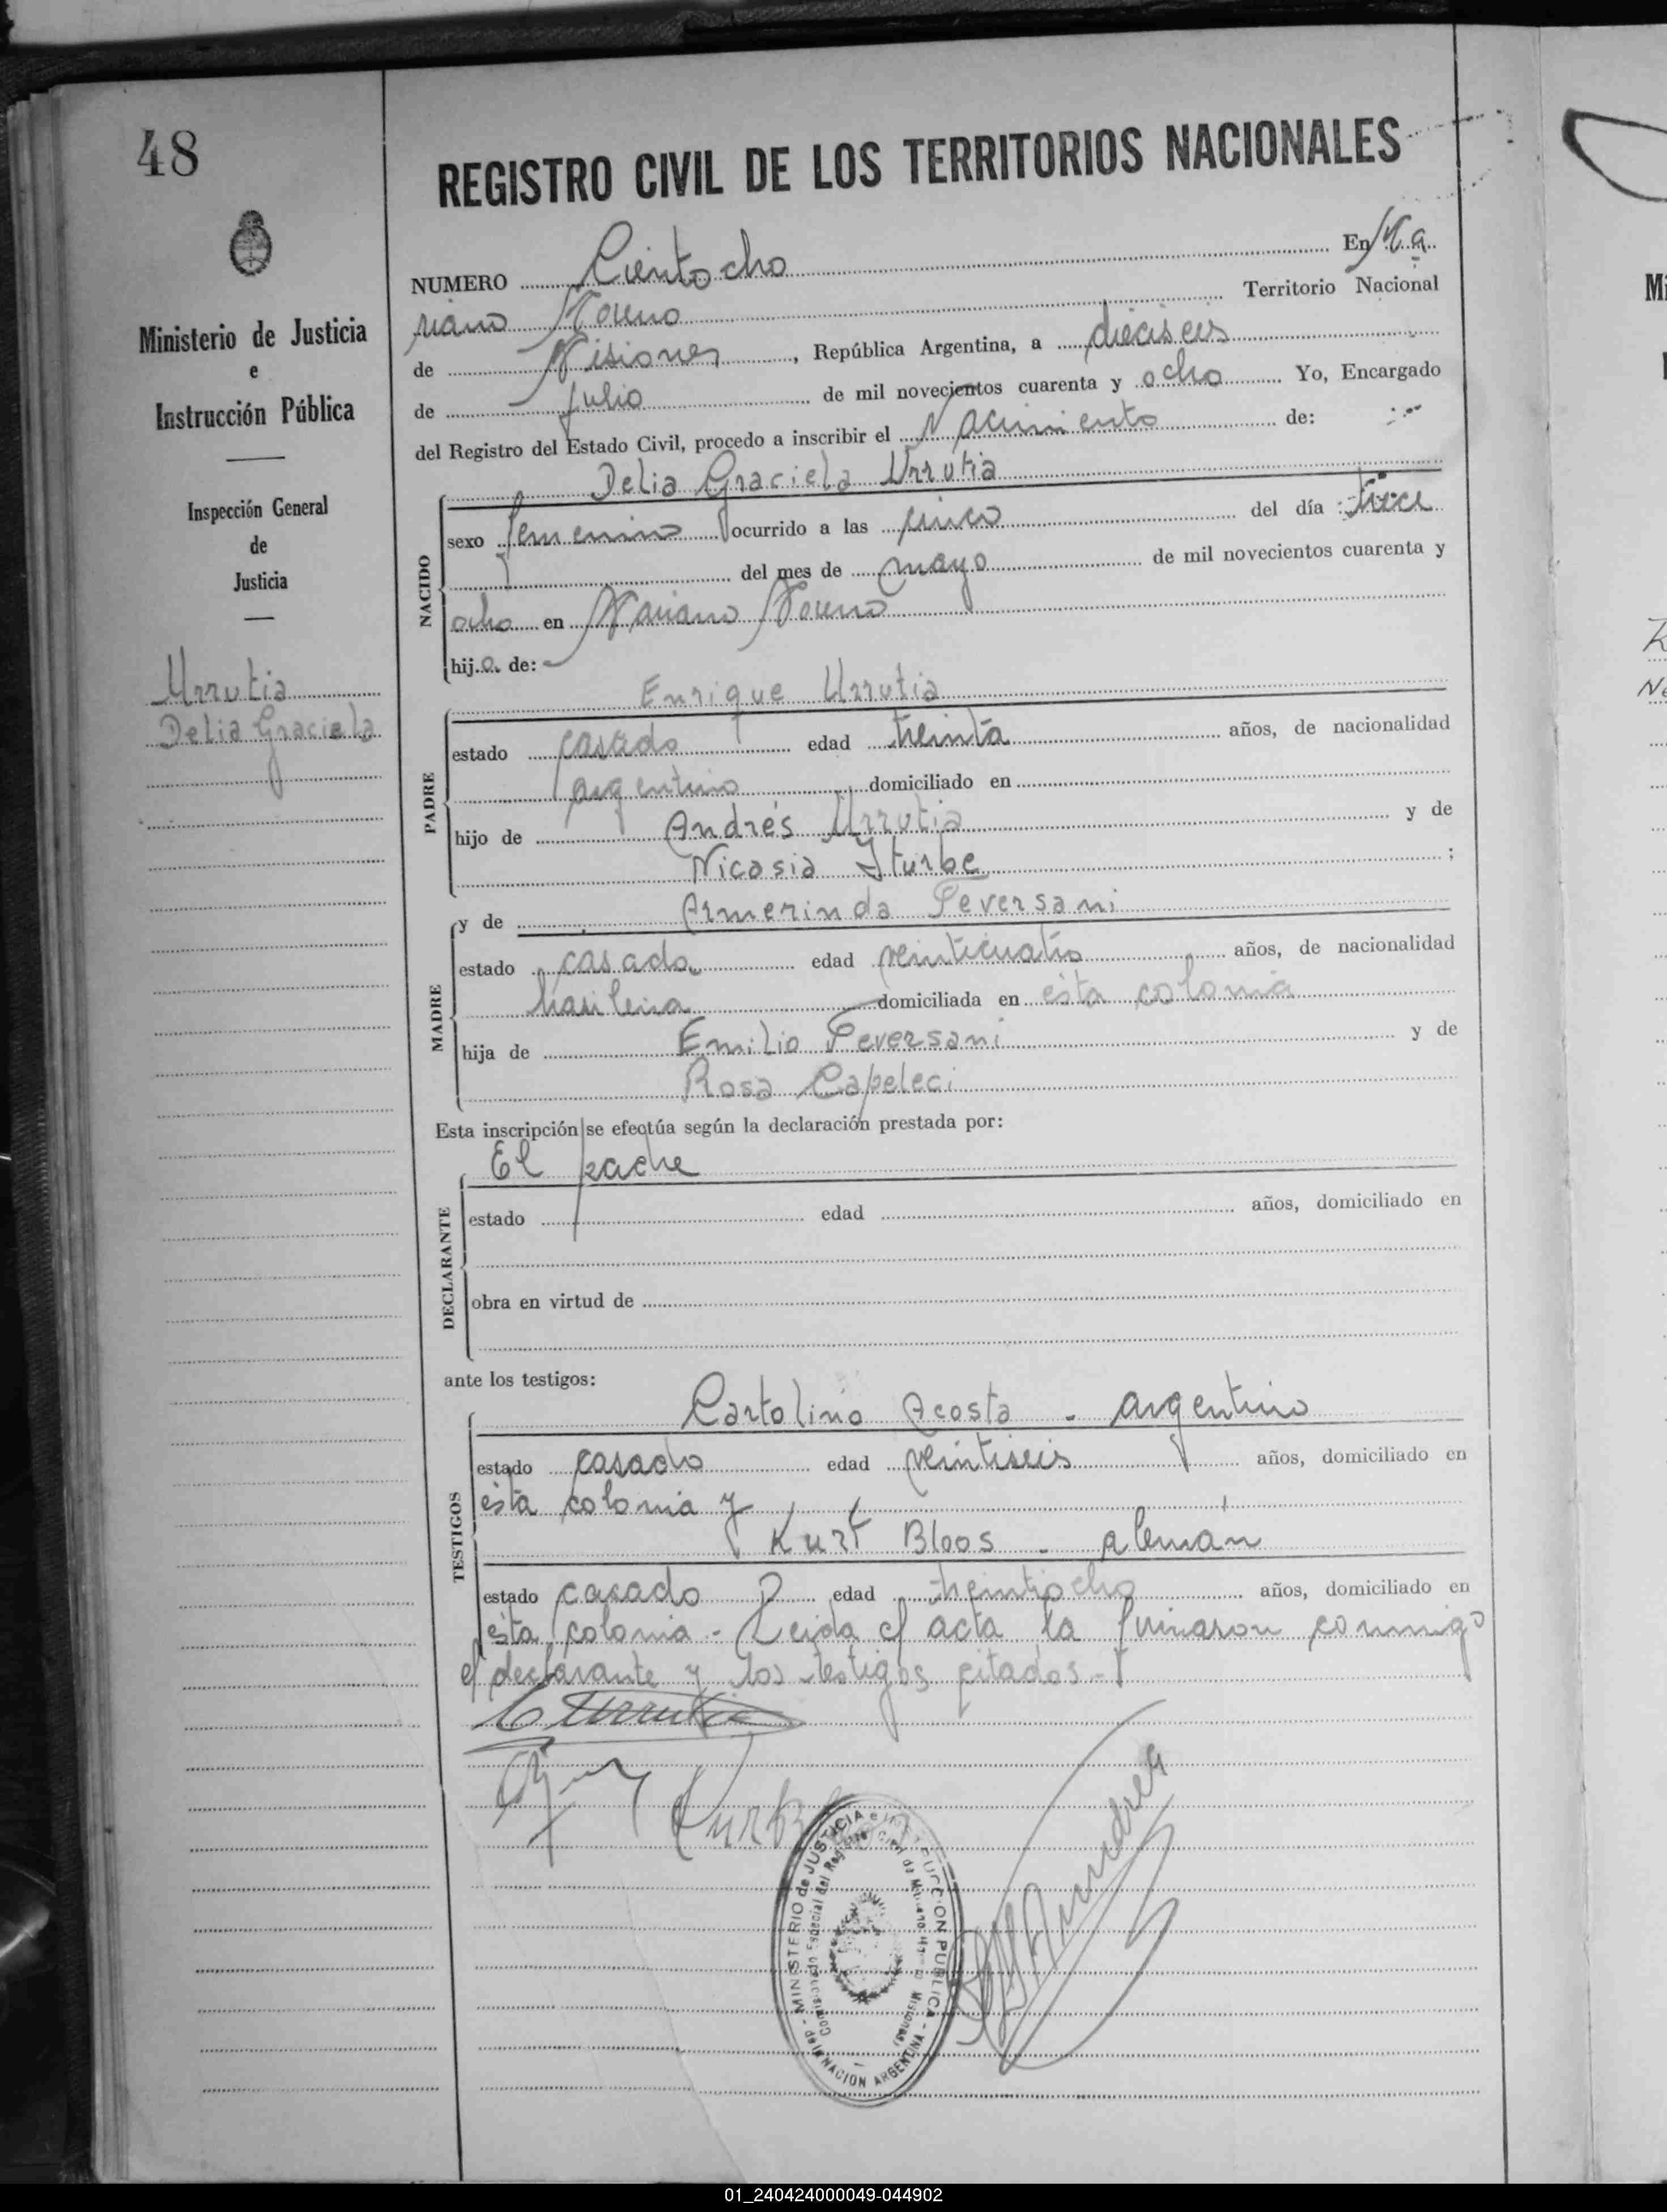 48
REGISTRO CIVIL DE LOS TERRITORIOS NACIONALES
Ministerio de Justicia
e
Instrucción Pública
Inspección General
de
Justicia
Urrutia
Delia Graciela
NUMERO Cientocho En Ma
riano Moreno Territorio Nacional
de Misiones, República Argentina, a dieciseis
de julio de mil novecientos cuarenta y ocho Yo, Encargado
del Registro del Estado Civil, procedo a inscribir el Nacimiento de:
Delia Graciela Urrutia
NACIDO
sexo femenino ocurrido a las cinco del día trece
del mes de mayo de mil novecientos cuarenta y
ocho en Mariano Moreno
hija de:
Enrique Urrutia
PADRE
estado casado edad treinta años, de nacionalidad
argentino domiciliado en
hijo de Andrés Urrutia y de
Nicasia Iturbe ;
y de Armerinda Peversani
MADRE
estado casada edad veinticuatro años, de nacionalidad
brasilena domiciliada en ésta colonia
hija de Emilio Peversani y de
Rosa Capeleci
Esta inscripción se efectúa según la declaración prestada por:
El padre
DECLARANTE
estado edad años, domiciliado en
obra en virtud de
ante los testigos:
Cartolino Acosta - argentino
TESTIGOS
estado casado edad veintiseis años, domiciliado en
ésta colonia y
Kurt Bloos - alemán
estado casado edad treintiocho años, domiciliado en
ésta colonia - Leida el acta la firmaron conmigo
el declarante y los testigos citados.-
E Urrutia
Kurt
MINISTERIO de JUSTICIA e INSTRUCCION PUBLICA
NACION ARGENTINA
01_240424000049-044902